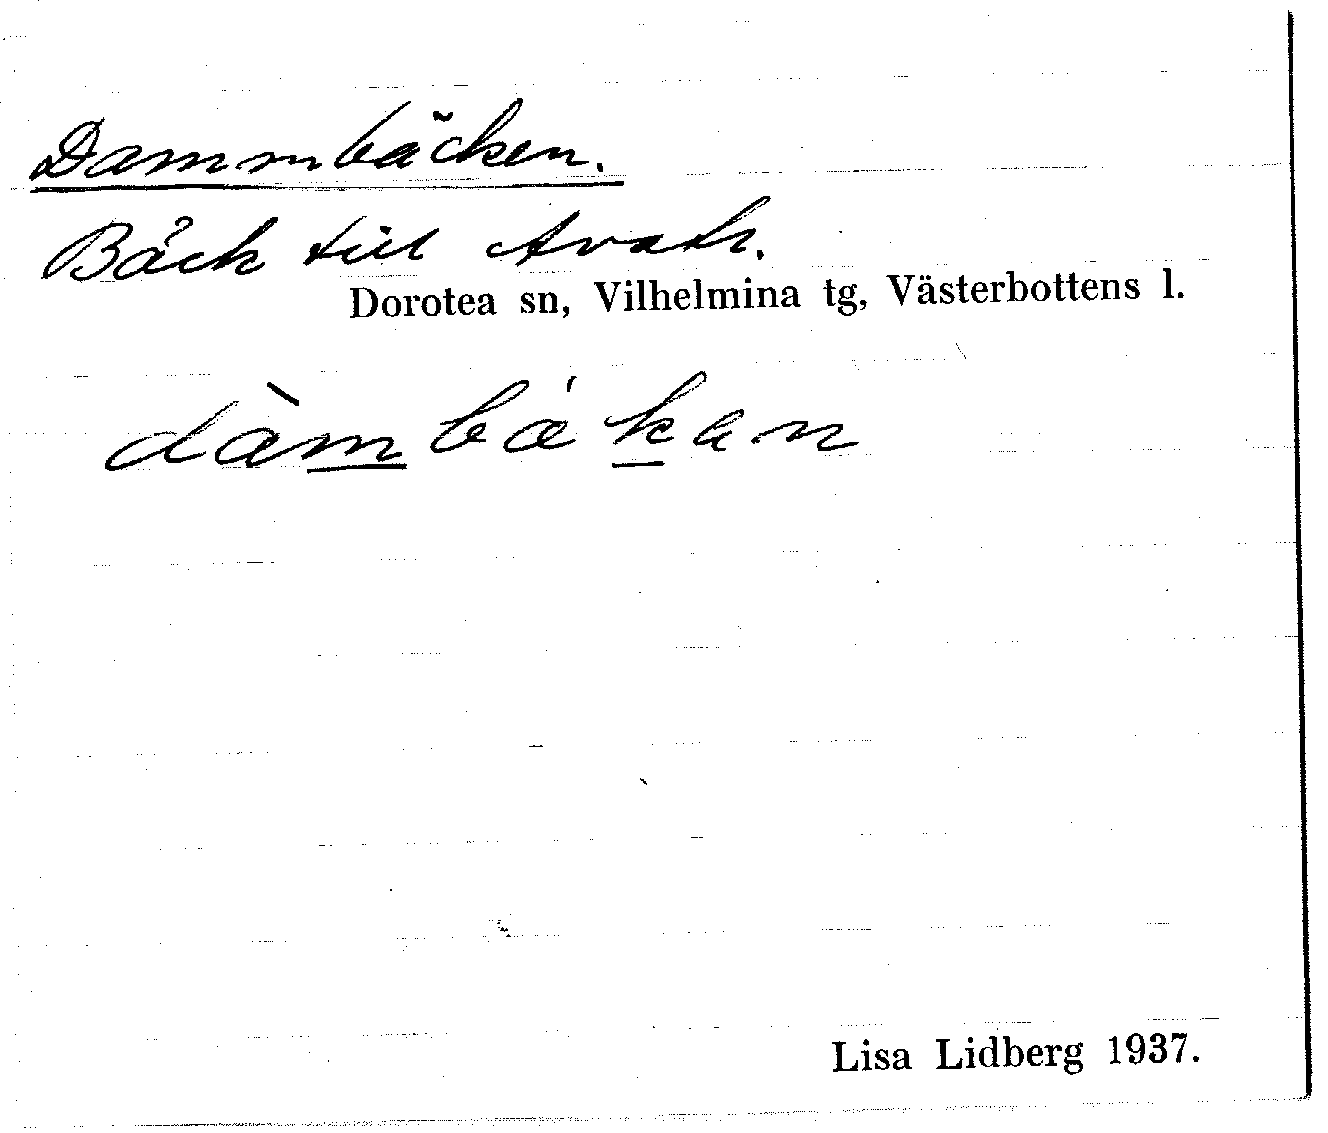 Dammbäcken.
Bäck till Avatr.
Dorotea sn, Vilhelmina tg, Västerbottens l.
dàmbǽkan
Lisa Lidberg 1937.